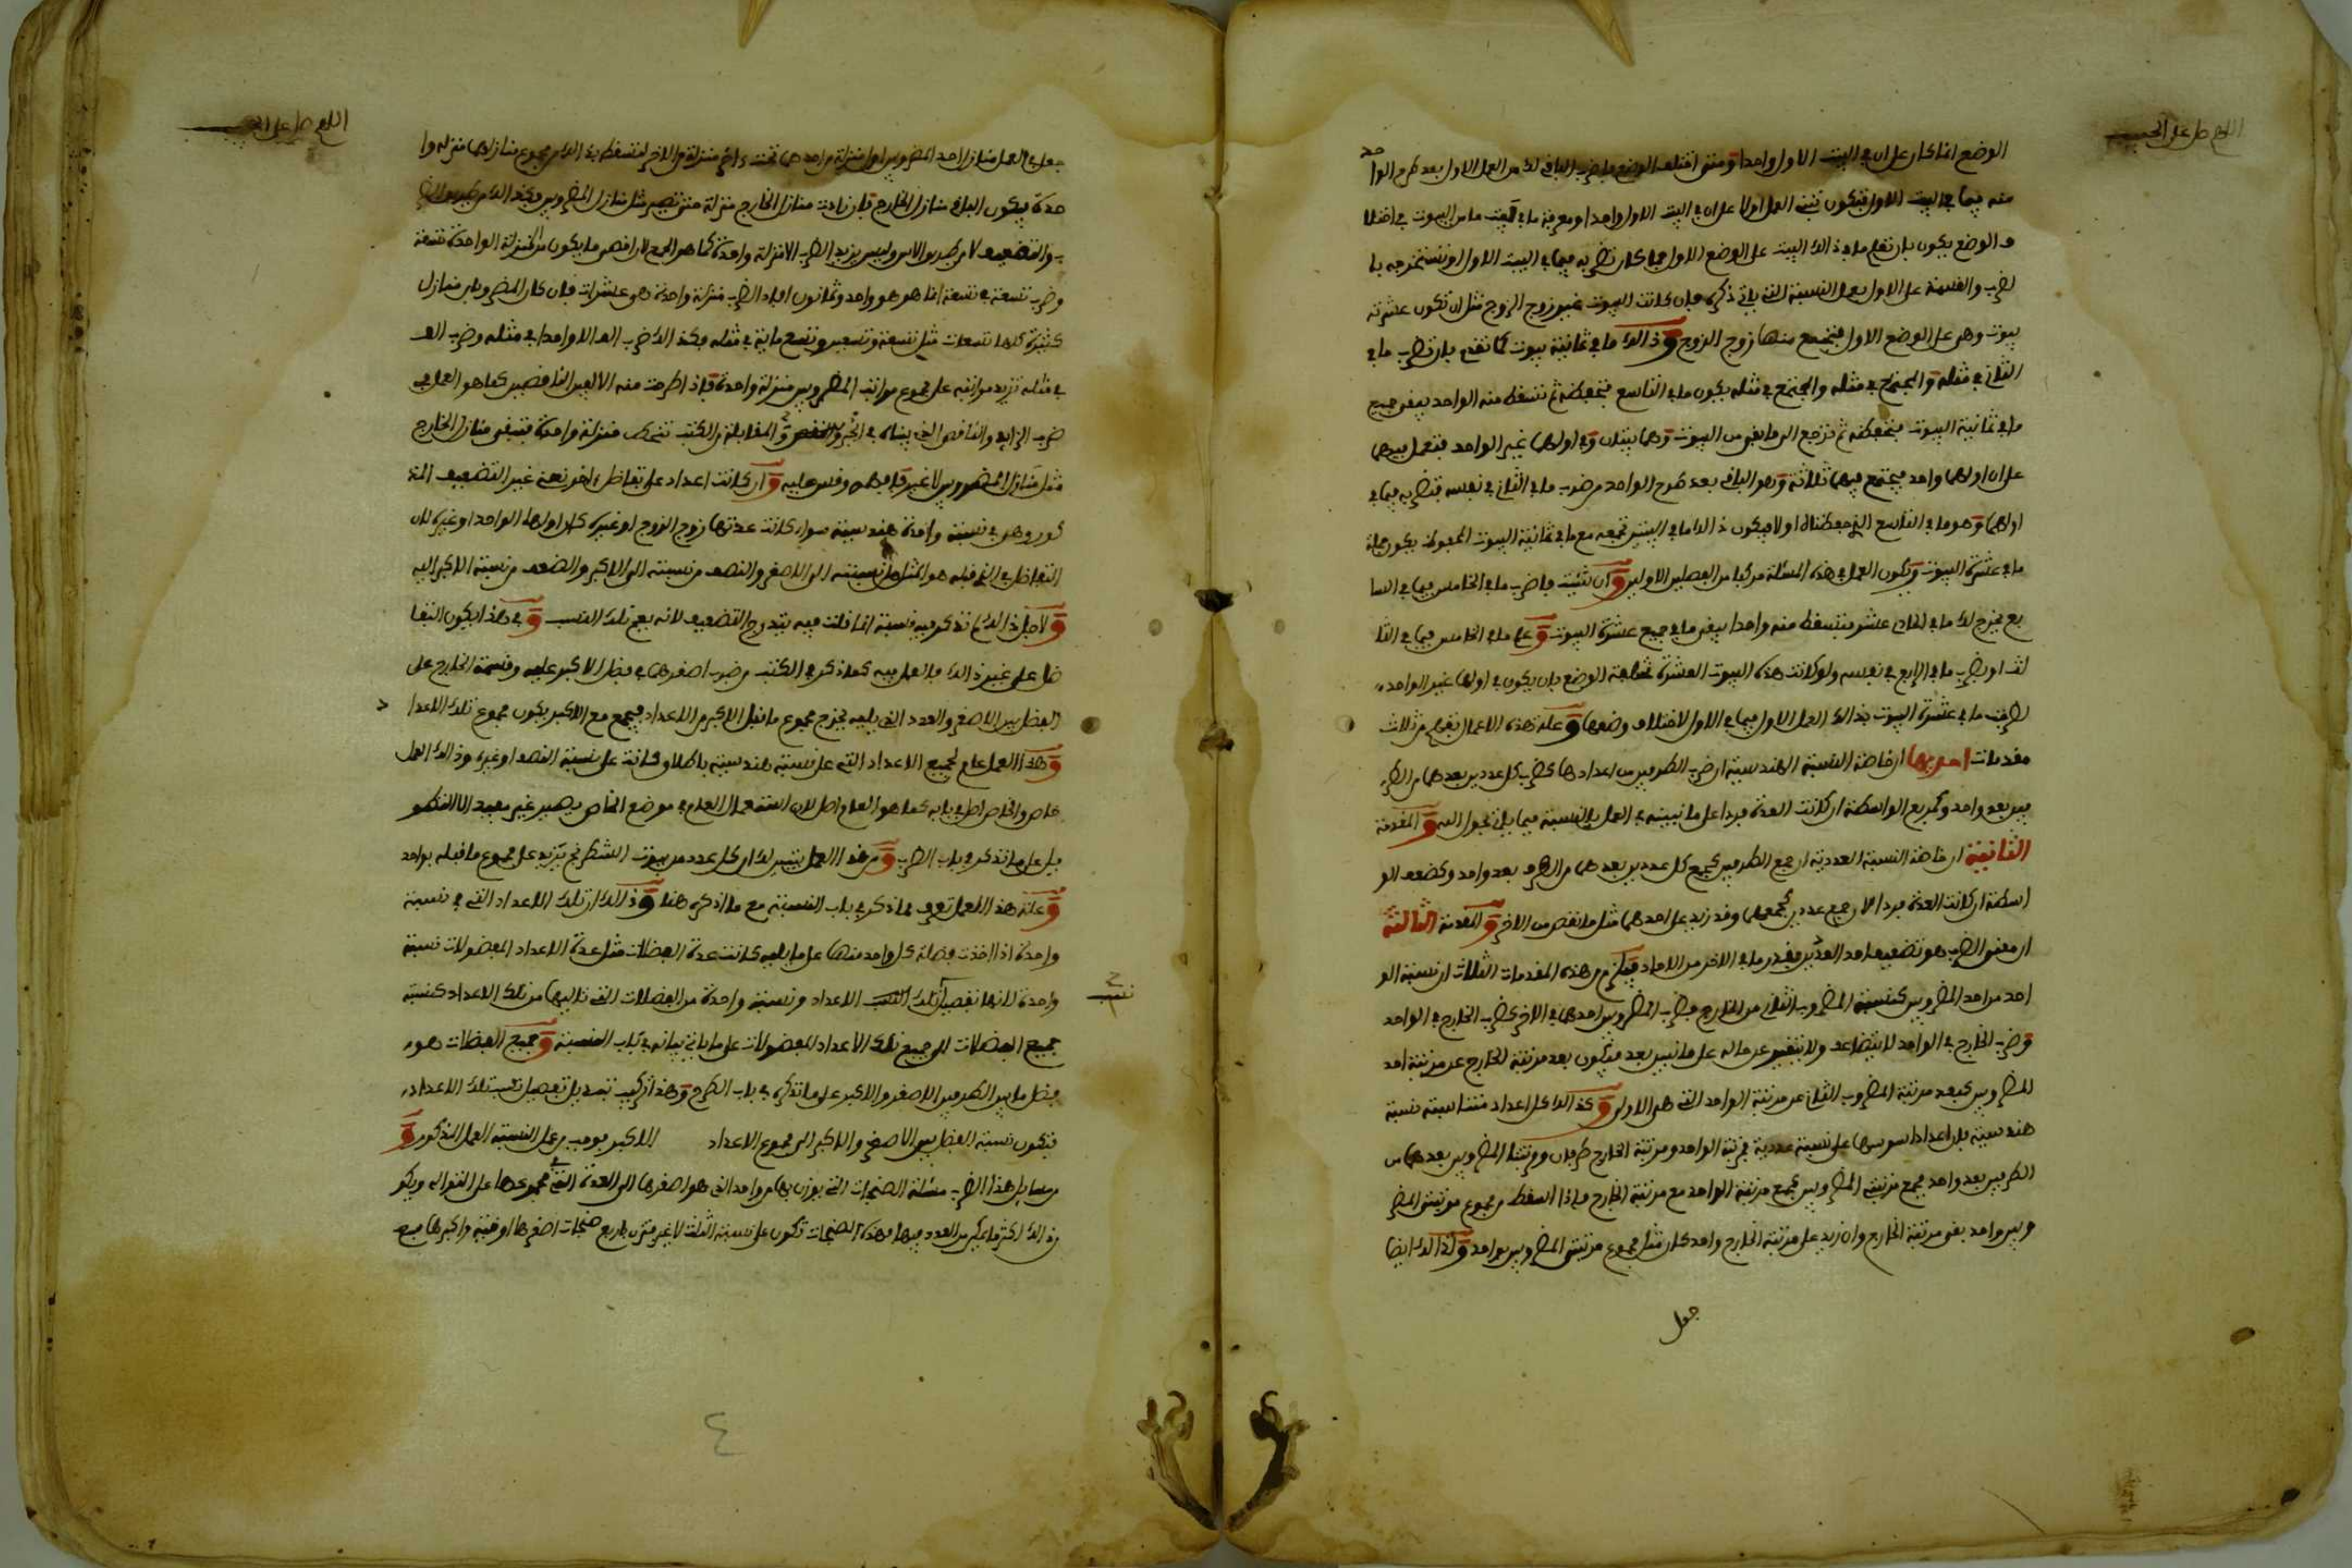 اللهم صل على الحبيب
الوضع انما كان على ان في البيت الاول واحدا ومتى اختلف الوضع فاضرب الباقي لك من العمل الاول بعد طرح الواحد
منه فيما في البيت الاول فتكون تبني العمل اولا على ان في البيت الاول واحدا ومعرفة ما في بيت ما من البيوت في اختلا
ف الوضع يكون بان تعلم ما في ذالك البيت على الوضع الاول فما كان تضربه فيما في البيت الاول او تستخرجه با
لضرب والقسمة على الاول بعمل النسبة التي ياتي ذكره فان كانت البيوت غير زوج الزوج مثل ان تكون عشرة
بيوت وهي على الوضع الاول فتجمع منها زوج الزوج وذالك ما في ثمانية بيوت كما تقدم بان تضرب ما في
الثاني في مثله والمجتمع في مثله والمجتمع في مثله يكون ما في التاسع فتحفظه ثم تسقط منه الواحد يبقى جميع
ما في ثمانية البيوت فتحفظه ثم ترجع الى ما بقي من البيوت وهما بيتان وفي اولهما غير الواحد فتعمل فيهما
على ان اولهما واحد فيجتمع فيهما ثلاثة وهو الباقي بعد طرح الواحد من ضرب ما في الثاني في نفسه فتضربه فيما في
اولهما وهو ما في التاسع الذي حفظناه اولا فيكون ذالك ما في البيتين تجمعه مع ما في ثمانية البيوت المحفوظ يكون جملة
ما في عشرة البيوت ويكون العمل في هذه المسئلة مركبا من الفصلين الاولين وان شئت فاضرب ما في الخامس فيما في السا
بع يخرج لك ما في الحادي عشر فتسقط منه واحدا يبقى ما في جميع عشرة البيوت وعلى ما في الخامس فيما في الثا
لث او يضرب ما في الرابع في نفسه ولو كانت هذه البيوت العشرة مختلفة الوضع بان يكون في اولها غير الواحد
لضربت ما في عشرة البيوت بذالك العمل الاول فيما في الاول لاختلاف وضعها وعلة هذه الاعمال تفهم من ثلاث
مقدمات احديها ان خاصة النسبة الهندسية ان ضرب الطرفين من اعدادها كضرب كل عددين بعدهما من الطر
فين بعد واحد وكمربع الواسطة ان كانت العدة فردا على ما نبينه في العمل بالنسبة فيما ياتي بحول الله والمقدمة
الثانية ان خاصة النسبة العددية ان جمع الطرفين كجمع كل عددين بعدهما من الطرف بعد واحد وكضعف الو
اسطة ان كانت العدة فردا لان جمع عددين كجمعهما وقد زيد على احدهما مثل ما نقص من الاخر والمقدمة الثالثة
ان معنى الضرب هو تضعيف احد العددين بقدر ما في الاخر من الاحاد فيلزم من هذه المقدمات الثلاث ان نسبة الو
احد من احد المضروبين كنسبة المضروب الثاني من الخارج فضرب المضروبين احدهما في الاخر كضرب الخارج في الواحد
وضرب الخارج في الواحد لا يتضاعف ولا يتغير عن حاله على ما نبين بعد فيكون بعد مرتبة الخارج عن مرتبة احد
المضروبين كبعد مرتبة المضروب الثاني عن مرتبة الواحد التي هي الاولى وكذالك كل اعداد متناسبة نسبة
هندسية فان اعداد اسوسها على نسبة عددية فمرتبة الواحد ومرتبة الخارج طرفان ومرتبتا المضروبين بعدهما من
الطرفين بعد واحد فجمع مرتبتي المضروبين كجمع مرتبة الواحد مع مرتبة الخارج فاذا اسقط من مجموع مرتبتي المضر
وبين واحد بقي مرتبة الخارج وان زيد على مرتبة الخارج واحد كان مثل مجموع مرتبتي المضروبين بواحد ولذالك ايضا
جعل
اللهم صل على
جعل في العمل منازل احد المضروبين اول منزلة من احدهما تحت اخر منزلة من الاخر لتسقط بذالك من مجموع منازلهما منزلة وا
حدة فيكون الباقي منازل الخارج فان زادت منازل الخارج منزلة حتى تصير مثل منازل المضروبين فكذالك
والتضعيف لا من طريق الاس وليس يزيد الضرب الا منزلة واحدة كما هو الجمع لان اقصى ما يكون من المنزلة الواحدة تسعة
وضرب تسعة في تسعة انما هو واحد وثمانون افاد الضرب منزلة واحدة هي عشرات فان كان المضروبان منازل
كثيرة كلها تسعات مثل تسعة وتسعين وتسع ماية في مثله فكذالك ضرب الف الا واحدا في مثله وضرب الف
في مثله تزيد مراتبه على مجموع مراتب المضروبين منزلة واحدة فاذا طرحت منه الالفين الناقصين كما هو العمل في
ضرب الزايد والناقص الذي بيناه في الجبر والمقابلة من الكتب تنحط منزلة واحدة فتبقى منازل الخارج
مثل منازل المضروبين لا غير فافهمه وقس عليه وان كانت اعداد على تفاضل اخر نعني غير التضعيف المذ
كور وهي في نسبة واحدة هندسية سواء كانت عدتها زوج الزوج او غيره كان اولها الواحد او غيره لان
التفاضل في الذي قبله هو المثل من نسبته الى الاصغر والنصف من نسبته الى الاكبر والضعف من نسبة الاكبر اليه
ولاجل ذالك لم نذكر فيه نسبة انما قلت فيه بتدرج التضعيف لانه يعم تلك النسب وفي هذا يكون التفا
ضل على غير ذالك فالعمل فيه كما ذكر في الكتب من ضرب اصغرها في فضل الاكبر عليه وقسمة الخارج على
الفضل بين الاصغر والعدد الذي يليه يخرج مجموع ما قبل الاكبر من الاعداد فيجمع مع الاكبر يكون مجموع تلك الاعدا
د
وهذا العمل عام لجميع الاعداد التي على نسبة هندسية باطلاق كانت على نسبة النصف او غيره وذالك العمل
خاص والخاص اصل في بابه كما هو العام اصل لان استعمال العام في موضع الخاص يصير غير مفيد الا التطو
يل على ما نذكر في باب الضرب ومن هذا العمل يتبين لك ان كل عدد من بيوت الشطرنج يزيد على مجموع ما قبله بواحد
وعلة هذا العمل تعرف مما ذكر في باب النسبة مع ما اذكره هنا وذالك ان تلك الاعداد التي في نسبة
واحدة اذا اخذت فضلة كل واحد منها على ما يليه كانت عدة الفضلات مثل عدة الاعداد المفضولات نسبة
واحدة لانها تفصيل تلك الاعداد ونسبة واحدة من الفضلات التي تاليها من تلك الاعداد كنسبة
نسب
جميع الفضلات الى جميع تلك الاعداد المفضولات على ما ياتي بيانه في باب النسبة وجميع الفضلات هو
فضل ما بين الطرفين الاصغر والاكبر على ما نذكره في باب الطرح وهذا تركيب تبديل تفصيل نسب تلك الاعداد
فتكون نسبة الفضل بين الاصغر والاكبر الى مجموع الاعداد الاكبر يوجب من عمل النسبة العمل المذكور و
من مسايل هذا الضرب مسئلة الصنجات التي يوزن بها من واحد الذي هو اصغرها الى العدة التي مجموعها على التوالي ويكو
ن ذالك اكثر ما يمكن من العدد فيها وهذه الصنجات تكون على نسبة الثلث لا غير مثل باربع صنجات اصغرها اوقية واكبرها سبع
٤